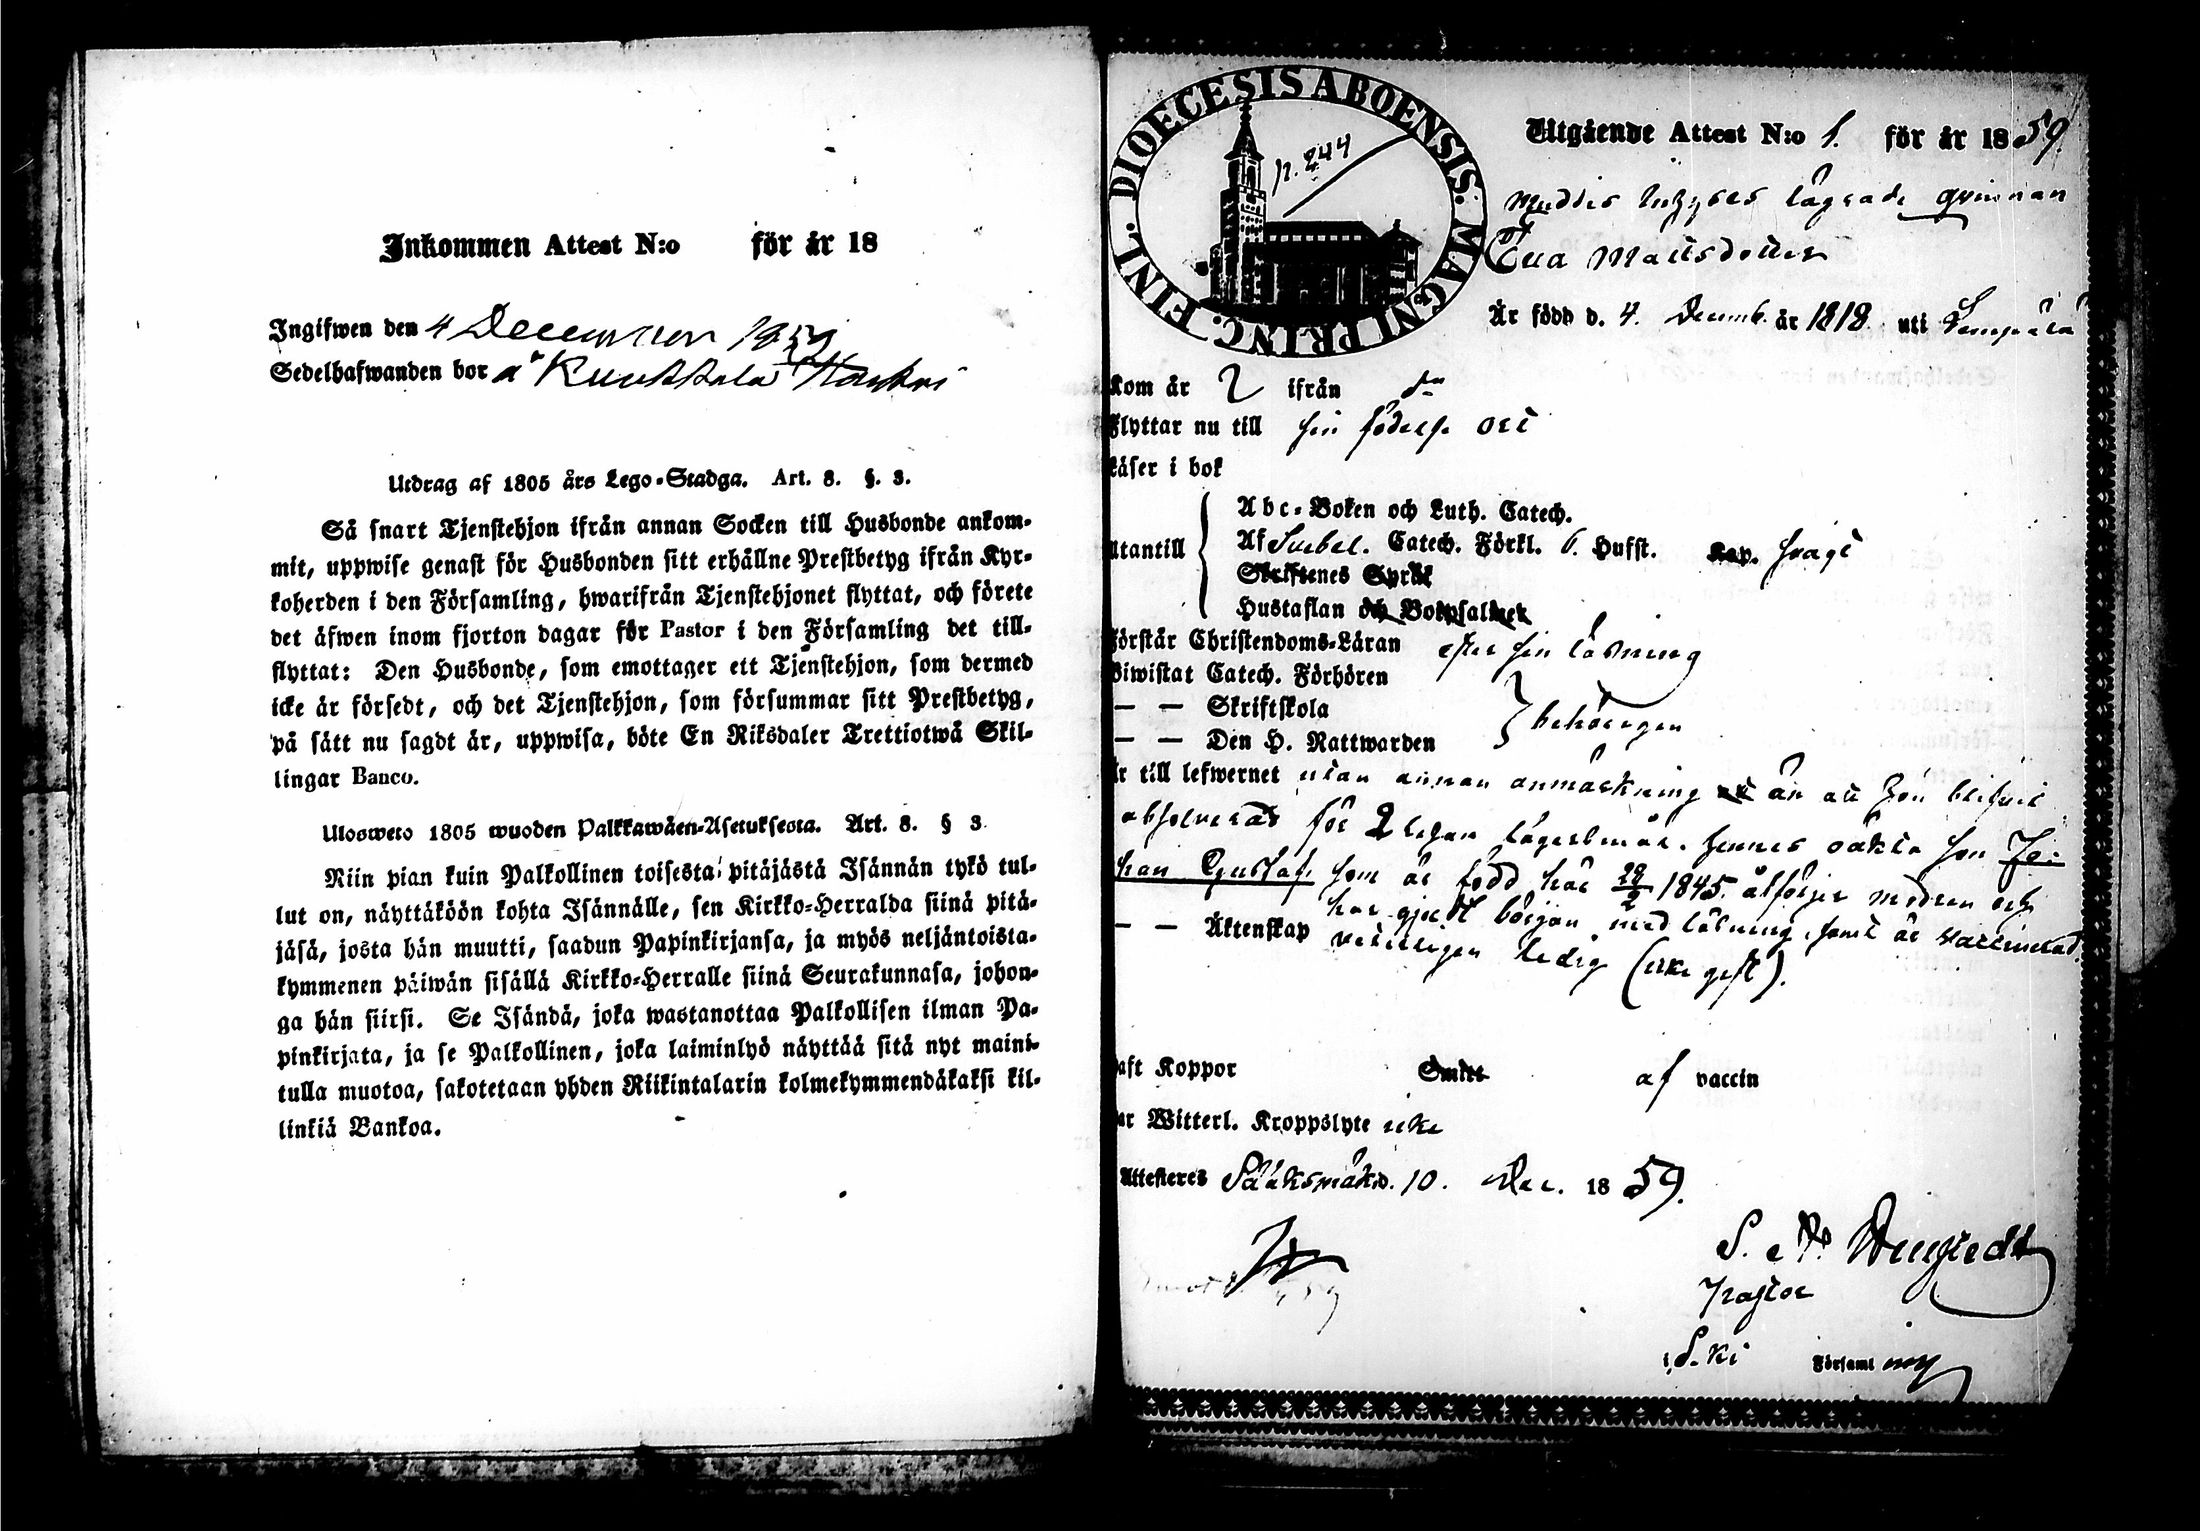 Inkommen Attest N:o för år 18
Ingifwen den 4 December 1859
Sedelhafwanden bor å Kuokkala
Utdrag af 1805 års Lego-Stadga. Art. 8. §. 3.
Så snart Tjenstehjon ifrån annan Socken till Husbonde ankom-
mit, uppwise genast för Husbonden sitt erhållne Prestbetyg ifrån Kyr-
koherden i den Församling, hwarifrån Tjenstehjonet flyttat, och förete
det äfwen inom fjorton dagar för Pastor i den Församling det till-
flyttat: Den Husbonde, som emottager ett Tjenstehjon, som dermed
icke är försedt, och det Tjenstehjon, som försummar sitt Prestbetyg,
på sätt nu sagdt är, uppwisa, böte En Riksdaler Trettiotwå Skil-
lingar Banco.
Ulosweto 1805 wuoden Palkkawäen-Asetuksesta. Art. 8. § 3
Niin pian kuin Palkollinen toisesta pitäjästä Isännän tykö tul-
lut on, näyttäköön kohta Isännälle, sen Kirkko-Herralda siinä pitä-
jäsä, josta hän muutti, saadun Papinkirjansa, ja myös neljäntoista-
kymmenen päiwän sisällä Kirkko-Herralle siinä Seurakunnasa, johon-
ga hän siirsi. Se Isändä, joka wastanottaa Palkollisen ilman Pa-
pinkirjata, ja se Palkollinen, joka laiminlyö näyttää sitä nyt maini-
tulla muotoa, sakotetaan yhden Riikintalarin kolmekymmendäkaksi kil-
linkiä Bankoa.
DIOECESIS ABOENSIS. MAGNI PRINC. FINL.
p. 244
Utgående Attest N:o 1. för år 1859.
lägrade qvinnan
Eva Mattsdotter
Är född d. 4. Decemb. år 1818. uti Lempäälä
Kom år 2 ifrån dn
Flyttar nu till sin födelse ort
Läser i bok
Utantill
Abc-Boken och Luth. Catech.
Af Svebel. Catech. Förkl. 6. Hufst. Kap. svagt
Skriftenes Språk
Hustaflan och Botpsalmer
Förstår Christendoms-Läran efter sin läsning
Biwistat Catech. Förhören
— — Skriftskola
— — Den H. Nattwarden
behörigen
Är till lefwernet utan annan anmärkning än att hon blifvit
absolverad för 2 resan lägersmål. Hennes oäkta son Jo-
han Gustaf som är född här 28/2 1845. åtföljer modren och
har gjort början med läsning, samt är vaccinerad.
— — Äktenskap veterligen ledig (icke gift).
Haft Koppor Smitt af vaccin
Har Witterl. Kroppslyte icke
Attesteres Sääksmäki d. 10. Dec. 1859.
Pastor
i S.ki Församling